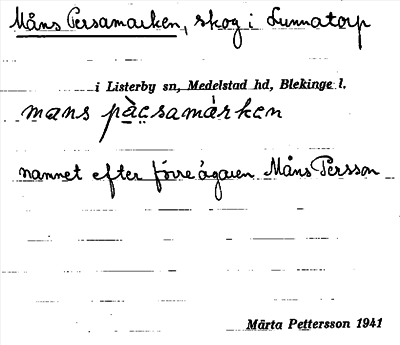 Måns Persamarken, skog i Lunnatorp
i Listerby sn, Medelstad hd, Blekinge l.
mans pàcsamárken
namnet efter förre ägaren Måns Persson
Märta Pettersson 1941